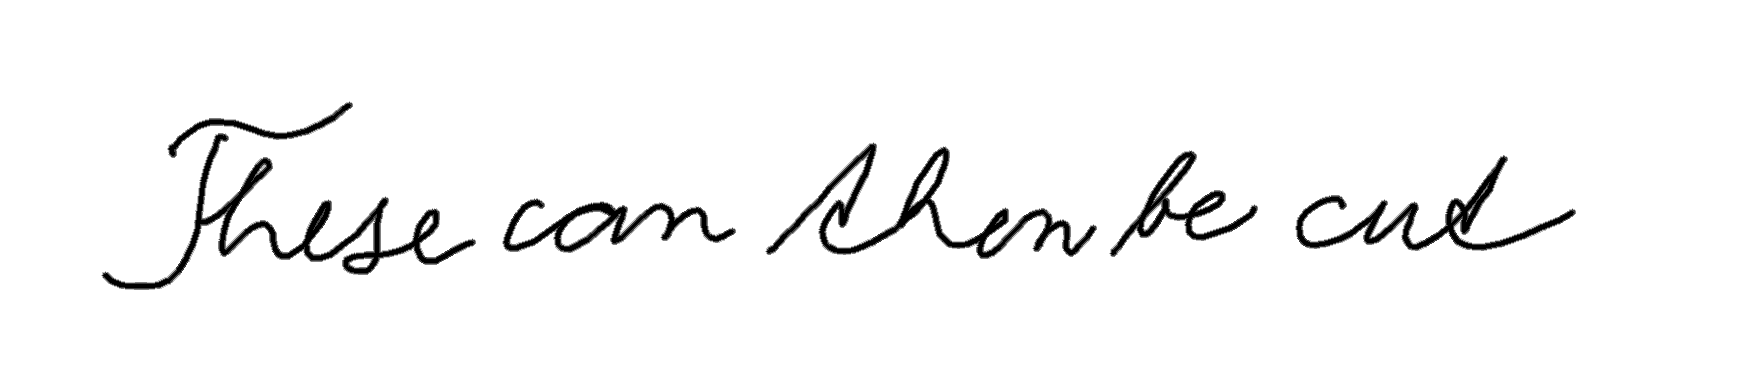 These can then be cut